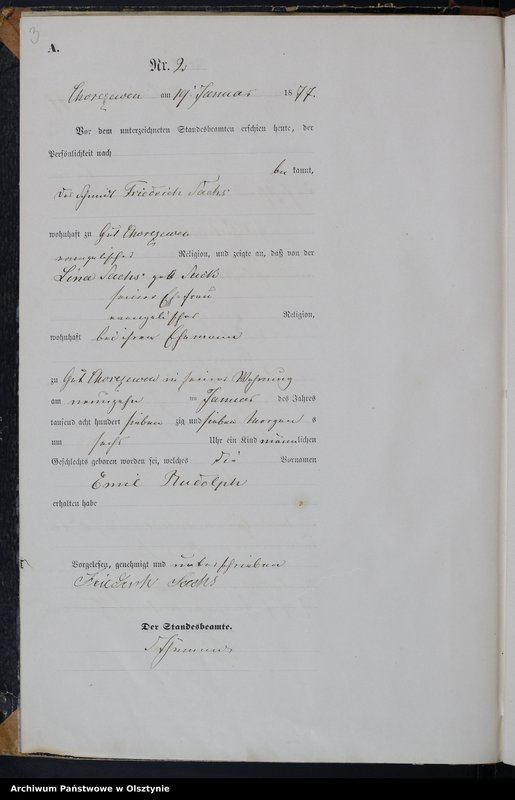 3
A.
Nr. 2
Chorczewen am 19t Januar 1877.
Vor dem unterzeichneten Standesbeamten erschien heute, der
Persönlichkeit nach
be kannt,
der Schmid Friedrich Sachs
wohnhaft zu Gut Chorczewen
evangelischer Religion, und zeigte an, daß von der
Lina Sachs geb
seiner Ehefrau
evangelischer Religion,
wohnhaft bei ihrem Ehemann
zu Gut Chorczewen in seiner Wohnung
am neunzehn ten Januar des Jahres
tausend acht hundert sieben zig und sieben Morgen s
um sechs Uhr ein Kind männlichen
Geschlechts geboren worden sei, welches die Vornamen
Emil Rudolph
erhalten habe
Vorgelesen, genehmigt und unterschrieben
Friedrich Sachs
Der Standesbeamte.
Archiwum Państwowe w Olsztynie